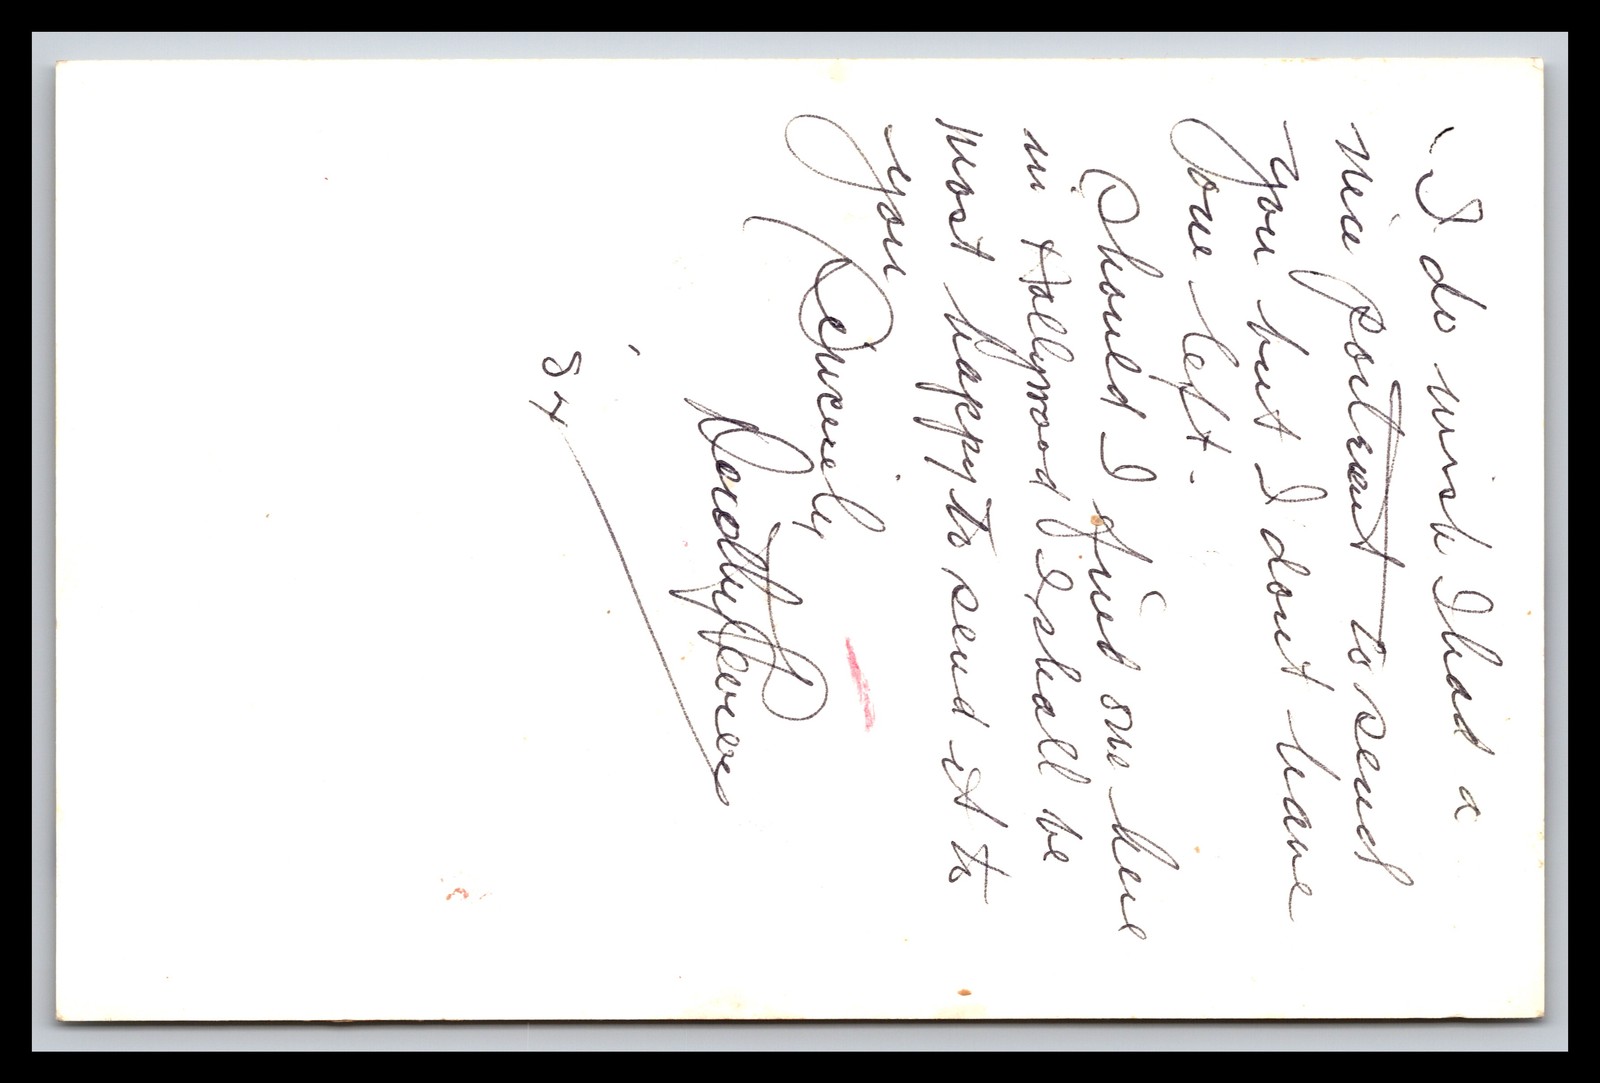 I do wish I had a
nice portrait to send
you but I dont have
one left -
Should I find one here
in Hollywood I shall be
most happy to send it to
you
Sincerely
Dorothy
84